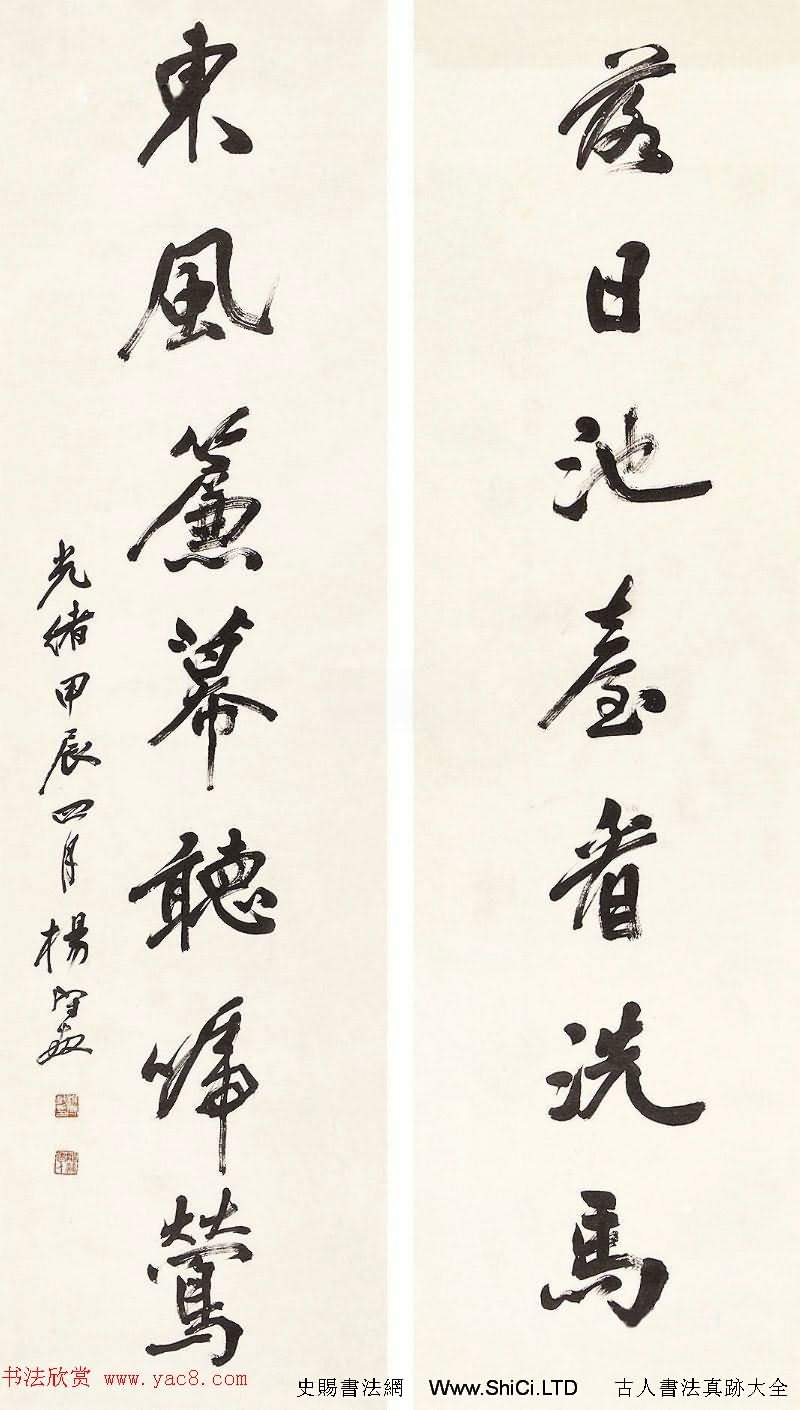 落日池臺看洗馬
東風簾幕聽啼鶯
光緒甲辰四月楊守敬
书法欣赏 www.yac8.com
史賜書法網 Www.ShiCi.LTD 古人書法真跡大全